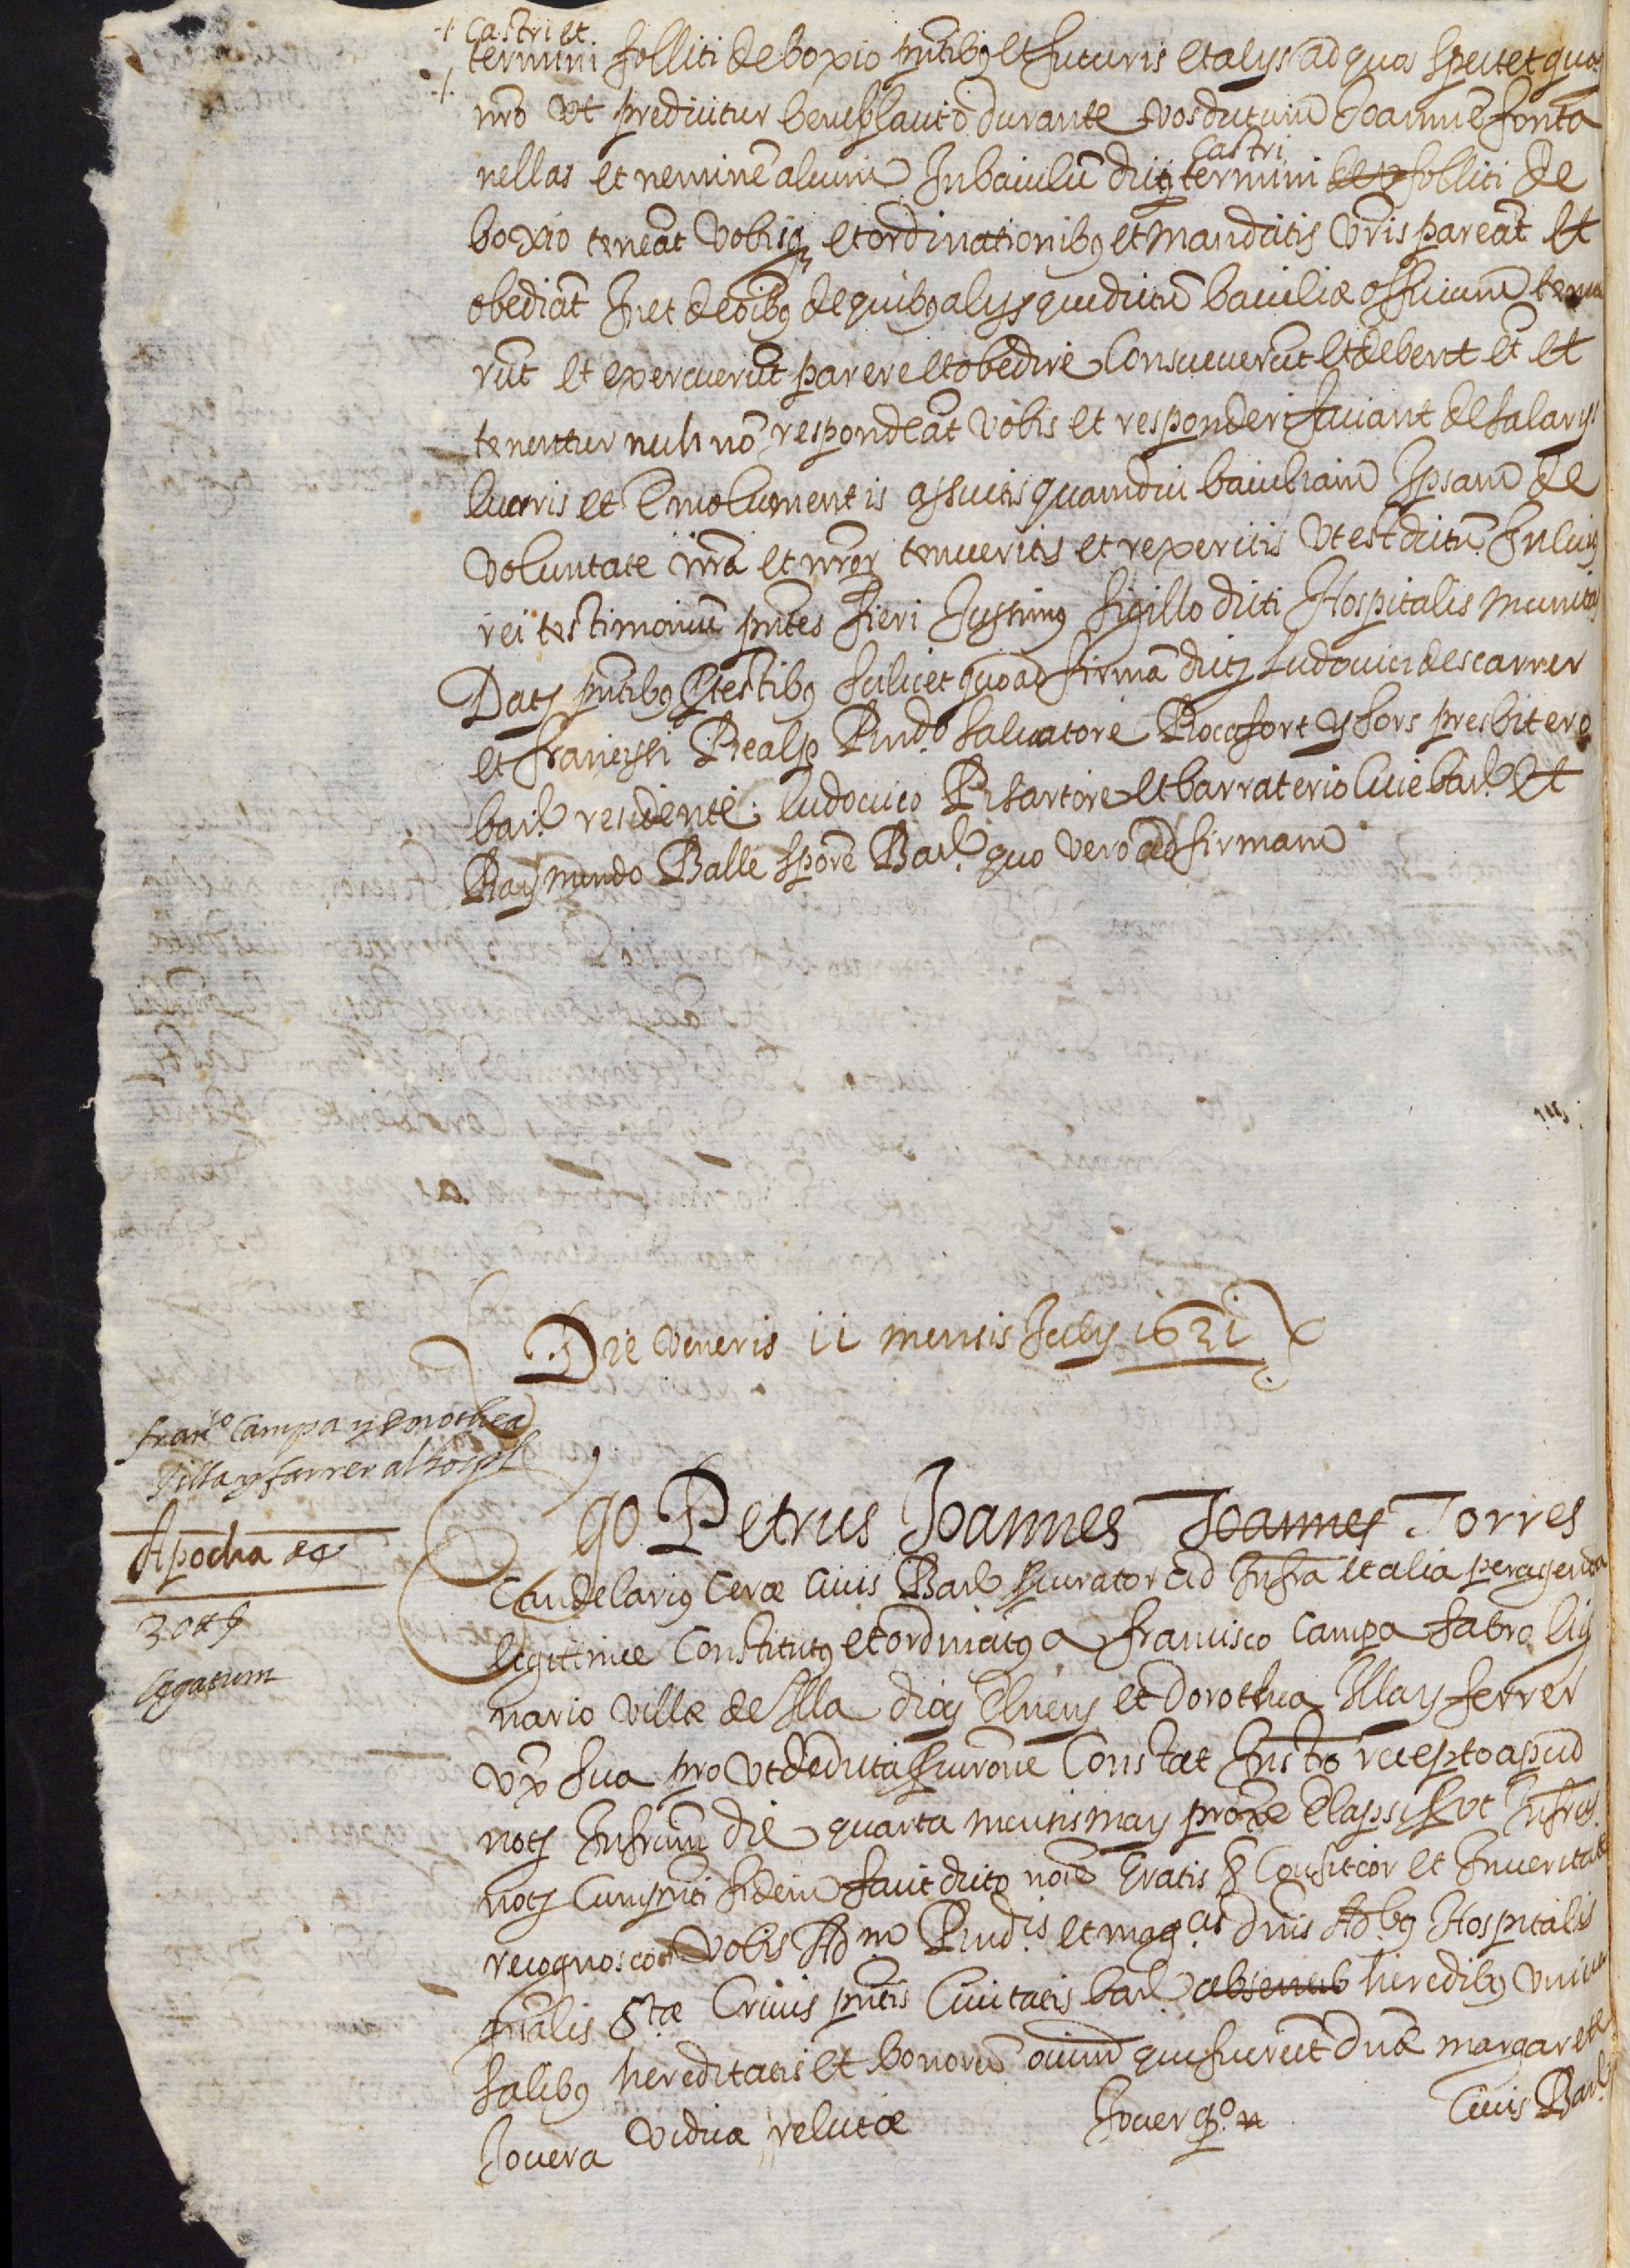 castri et
termini folliti de boxio pntibꝰ et futuris et alys ad quos spectet quo
nro ut predicitur beneplacito durante vos dictum Joannem fonta
nellas et neminem alium In baiulũ dicti castri termini folliti de
boxio teneãt vobisqꝫ et ordinationibꝰ et mandatis vris pareãt et
obediãt In et de oibꝰ de quibꝰ alys qui dictũ baiuliæ officium tenu
rũt et exercuerũt parere et obedire consueverũt et debent et
tenentur nec nõ respondeãt vobis et responderi faciant de salarys
lucris et Emolumentis assuetis quamdiu baiuliam Ipsam de
voluntate nrã et nror tenueritis et rexeritis ut est dictũ In cuiꝰ
rei testimoniũ pntes fieri Jussimꝰ sigillo dicti Hospitalis munitas
Datꝫ pntibꝰ testibꝰ scilicet quo ad firmã dictꝫ Ludovici descarrer
et francisci Realp Rndo. Salvatore Rocafort y sors presbitero
barl. residente; ludovico Pi sartore et barraterio cive barl. et
Raymundo Balle sporẽ Barl. quo vero ad firmam
Die veneris 11 mensis July 1631
franco. Campa y Dorothea
Illa y farrer al hospl
Apocha de
30 ll 9
legatum
Ego Petrus Joannes Joannes Torres
Candelariꝰ Ceræ Civis Barl procurator ad Infra et alia peragenda
legitime Constitutꝰ et ordinatꝰ a francisco Campa fabro lig
nario villæ de Illa diocꝫ Elneñ et Dorothea Illa y ferrer
uxe sua pro ut de dicta procurone Constat Instro recepto apud
notꝫ Infrum die quarta mensis may proxe Elapsi ut Infrus
notꝫ cum pnti fidem facit dicto noie Gratis & Confiteor et In veritate
recognosco vobis Adm. Rndis. et magcis. dnis Adbꝰ Hospitalis
gnalis Stæ Crucis pntis Civitatis barl. absenub heredibꝰ univer
salibꝰ hereditatis et bonorũ oium que fuerũt dnæ margarete
Jovera vidua relictæ Jover qo. n Civis Barl